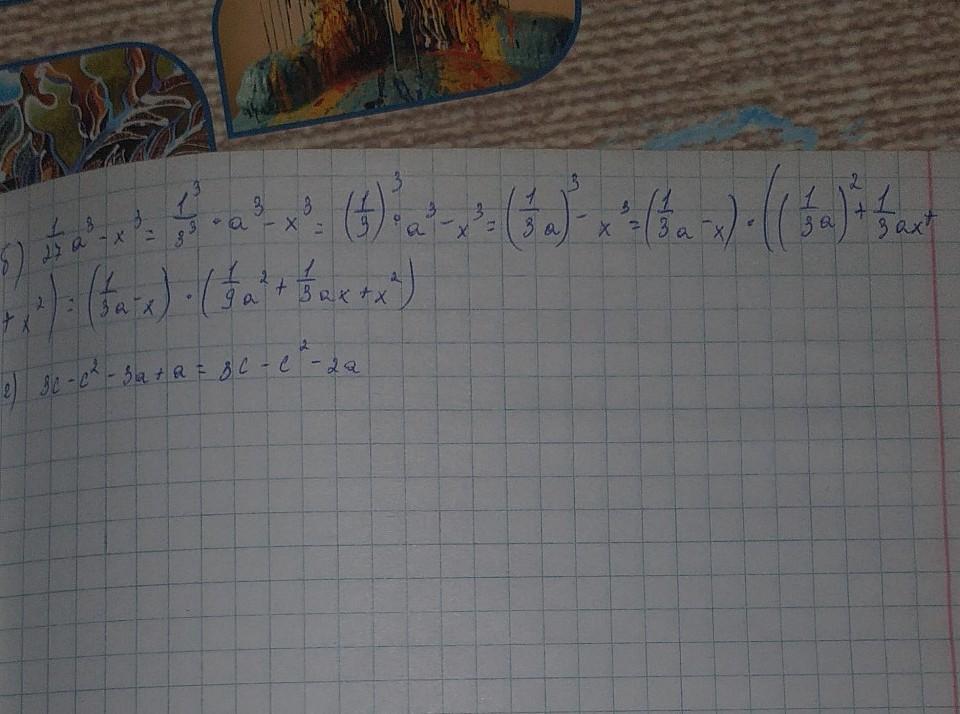 б) 1/27 a³ - x³ = 1³/3³ · a³ - x³ = (1/3)³ · a³ - x³ = (1/3 a)³ - x³ = (1/3 a - x) · ((1/3 a)² + 1/3 ax +
+ x²) = (1/3 a - x) · (1/9 a² + 1/3 ax + x²)
г) 3c - c² - 3a + a = 3c - c² - 2a